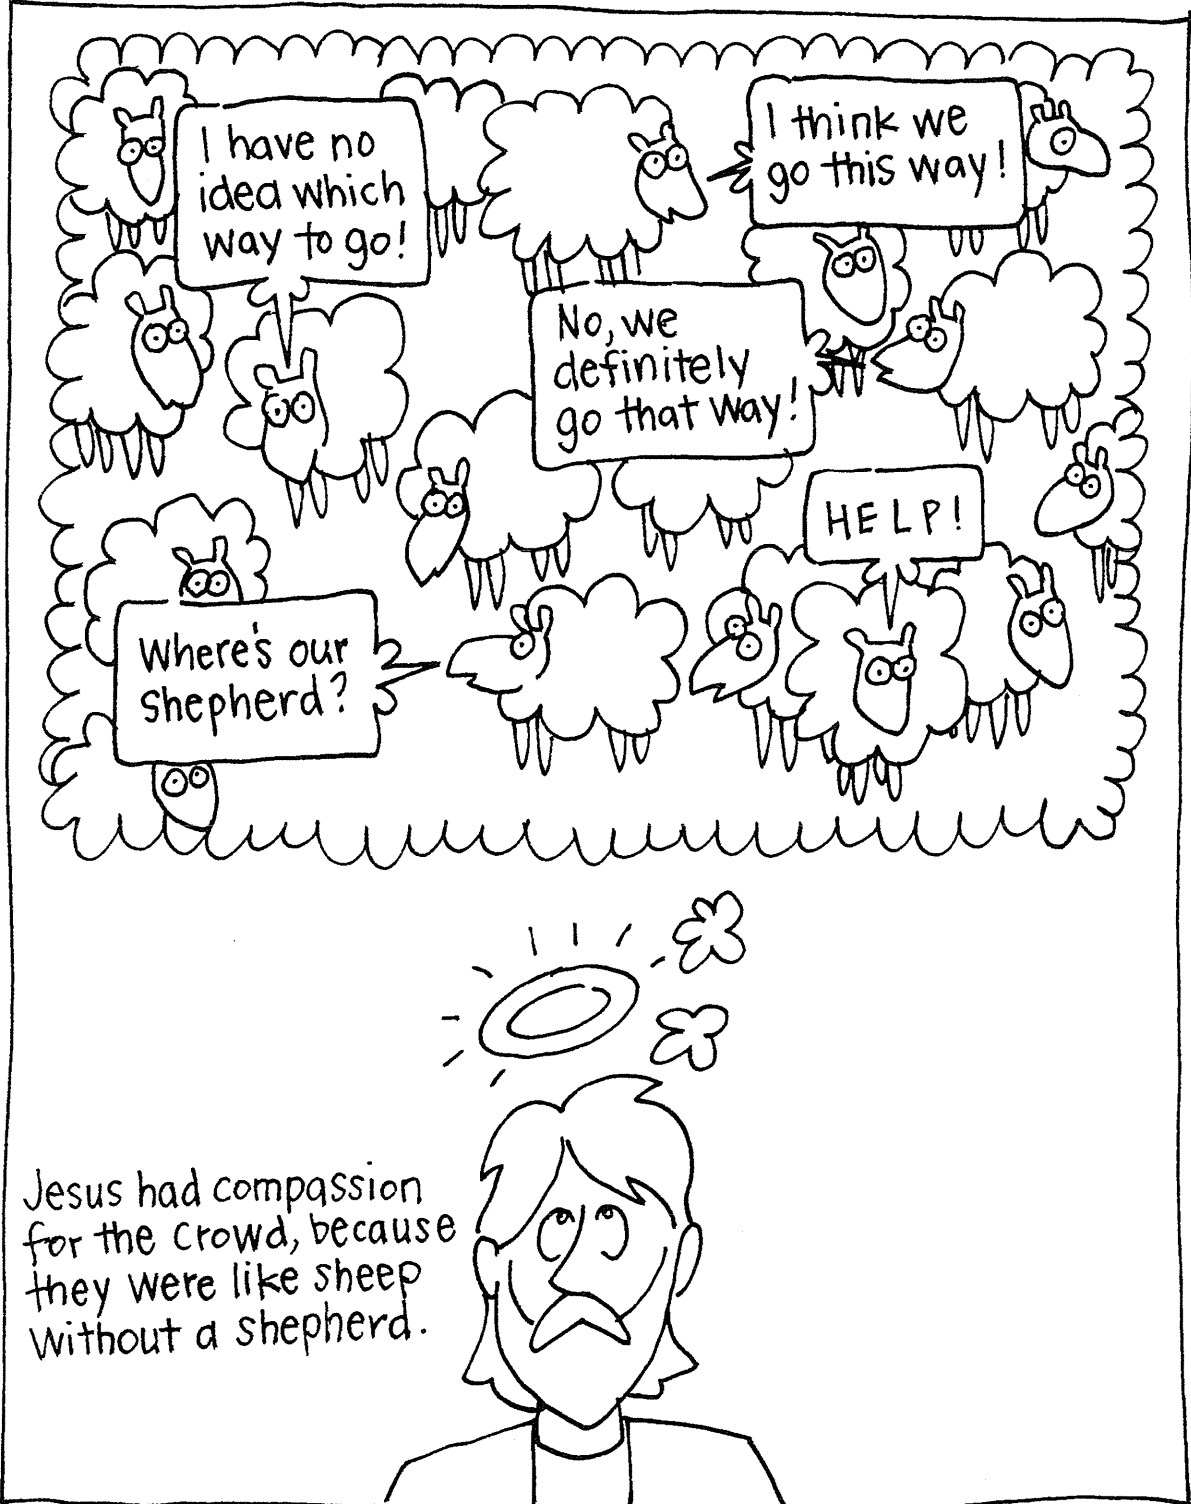 I have no
idea which
way to go!
I think we
go this way!
No, we
definitely
go that way!
HELP!
Where's our
shepherd?
Jesus had compassion
for the crowd, because
they were like sheep
without a shepherd.